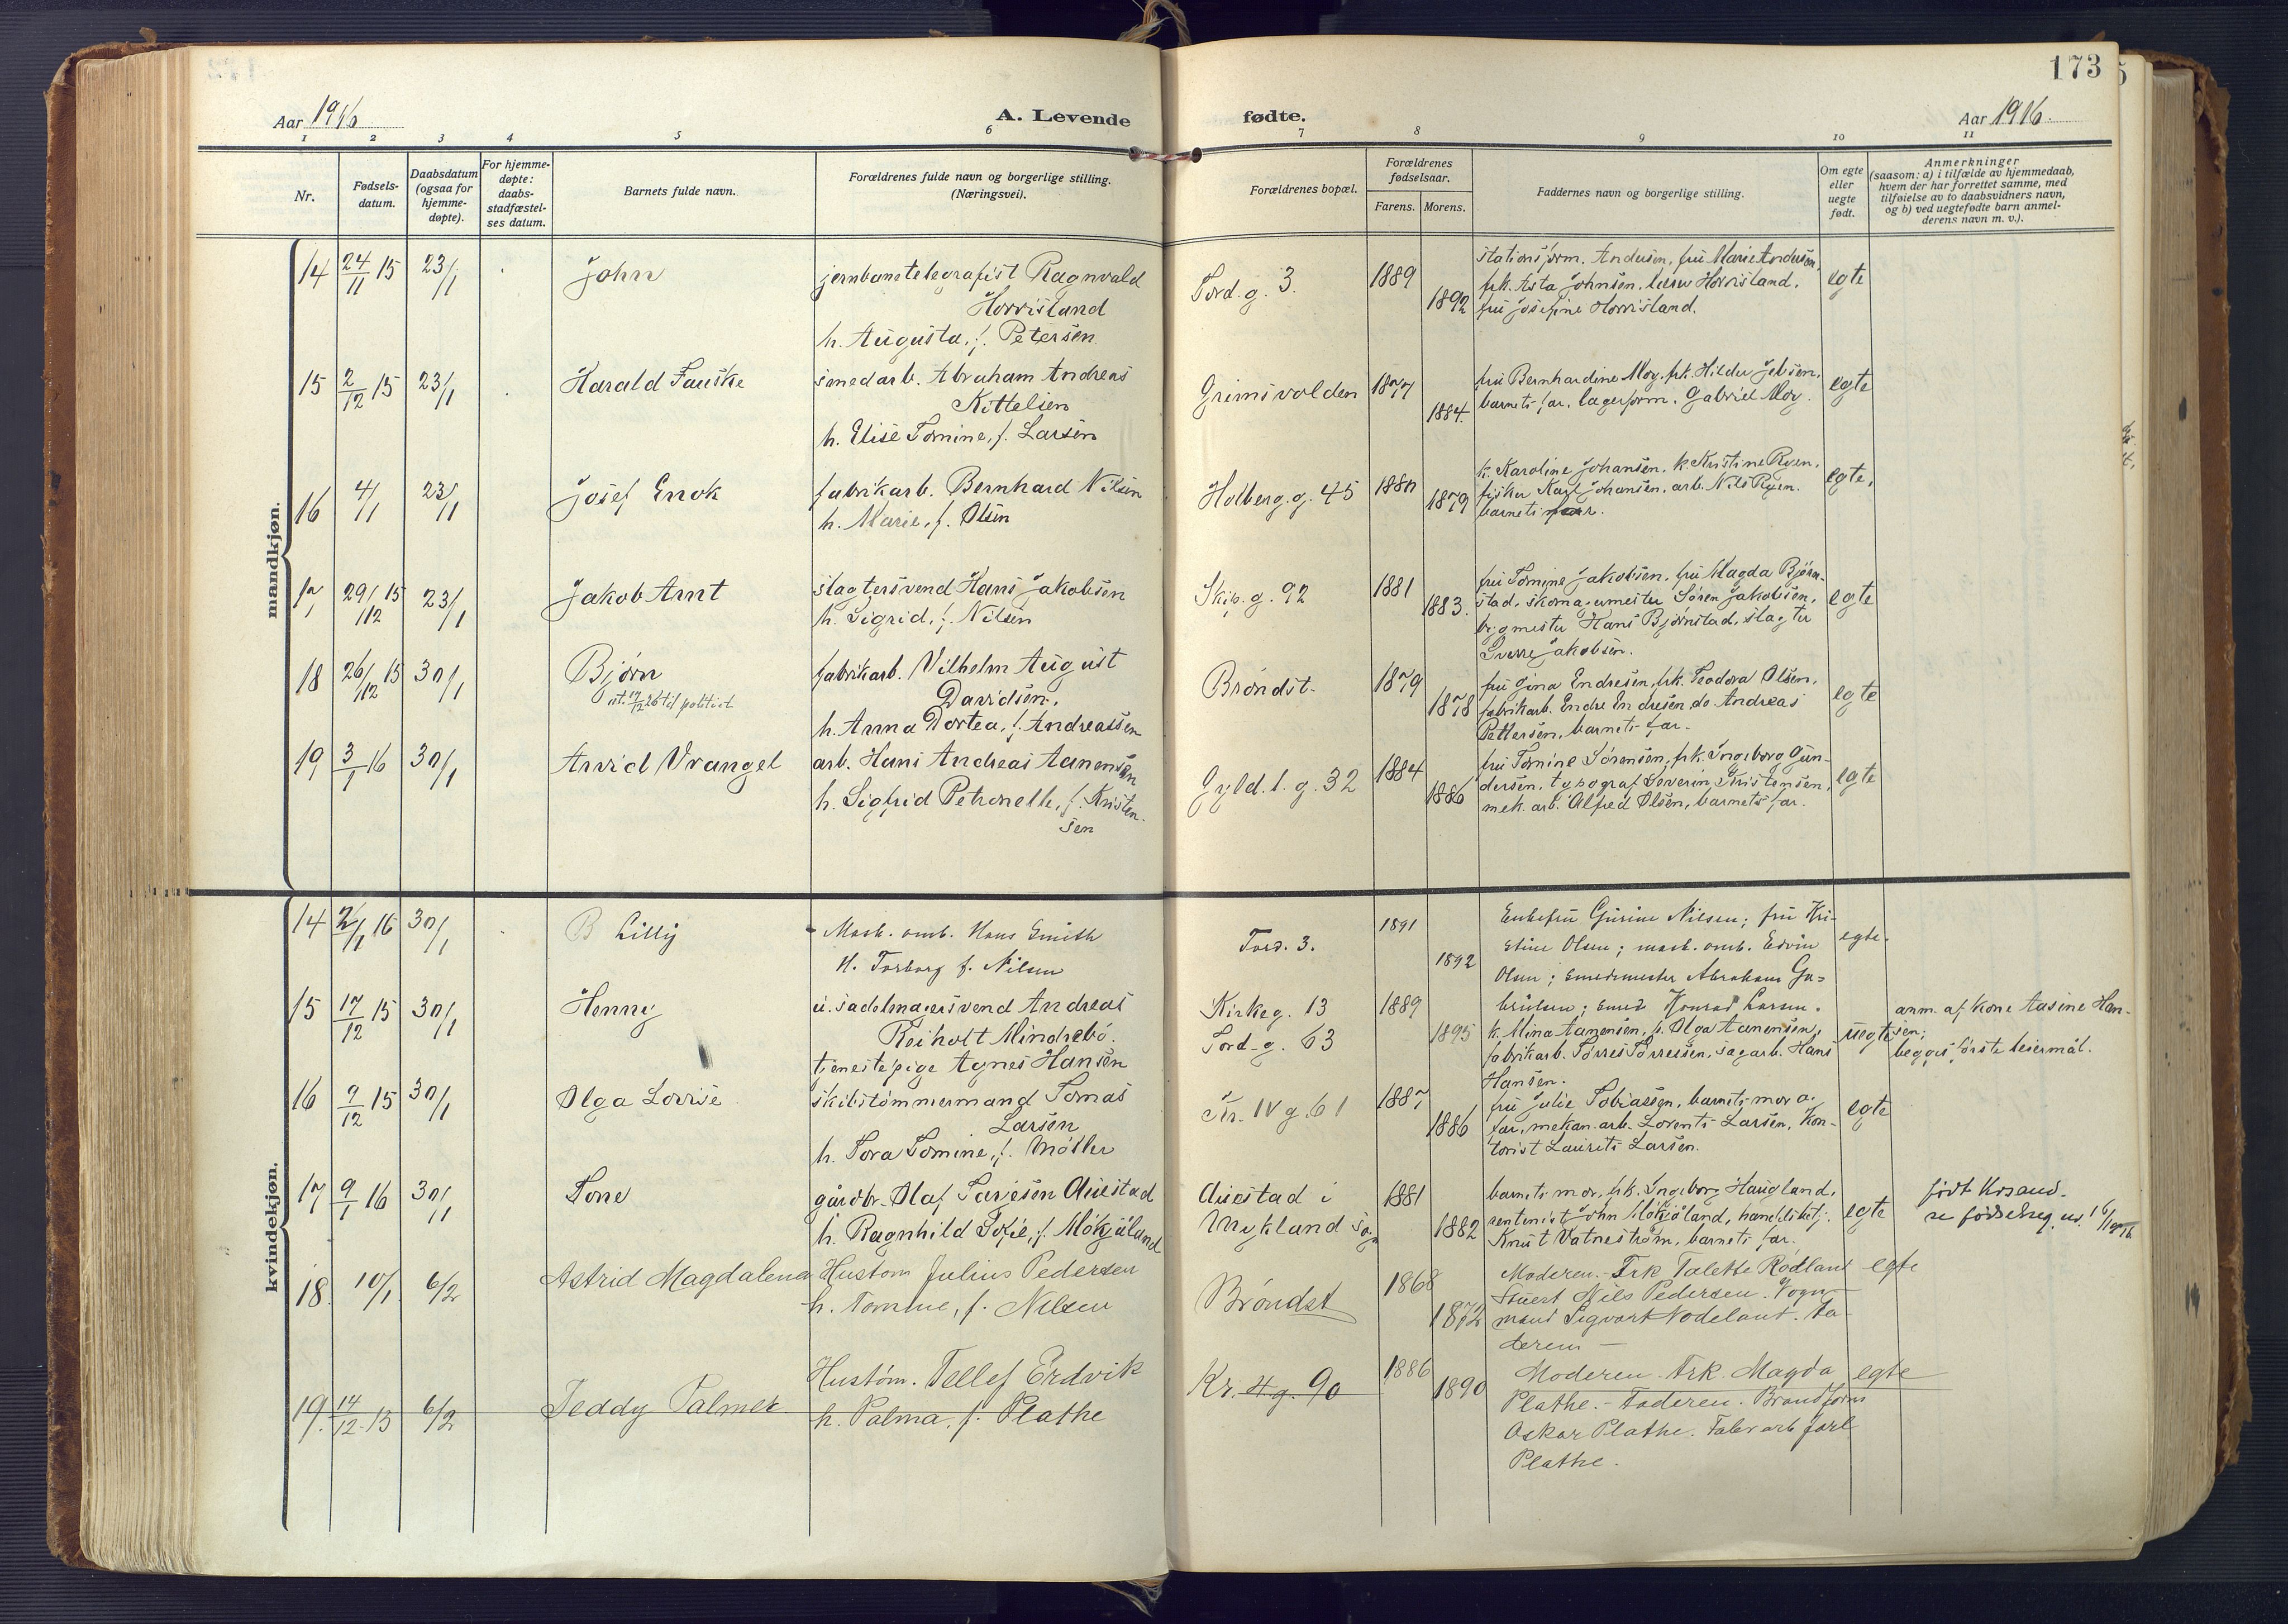 173
Aar 1916
A. Levende
fødte.
Aar 1916.
1 2 3 4 5 6 7 8 9 10 11
Nr.
Fødsels-
datum.
Daabsdatum
(ogsaa for
hjemme-
døpte).
For hjemme-
døpte:
daabs-
stadfæstel-
ses datum.
Barnets fulde navn.
Forældrenes fulde navn og borgerlige stilling.
(Næringsvei).
Forældrenes bopæl.
Forældrenes
fødselsaar.
Farens. Morens.
Faddernes navn og borgerlige stilling.
Om egte
eller
uegte
født.
Anmerkninger
(saasom: a) i tilfælde av hjemmedaab,
hvem der har forrettet samme, med
tilføielse av to daabsvidners navn,
og b) ved uegtefødte barn anmel-
derens navn m. v.).
mandkjøn.
14 24/11 15 23/1 John
jernbanetelegrafist Ragnvald
Horrisland
h. Augusta, f. Petersen
Tord. g. 3. 1889 1892
stationsform. Andersen, fru Marie Andersen,
frk. Asta Johnsen, Horrisland,
fru Josefine Horrisland.
egte
15 2/12 15 23/1 Harald Fauske
smedarb. Abraham Andreas
Kittelsen
h. Elise Tomine, f. Larsen
Grimsvolden 1877 1884.
fru Bernhardine Moy, frk. Hilda Jebsen,
barnets far, lagerform. Gabriel Moy.
egte
16 4/1 23/1 Josef Enok
fabrikarb. Bernhard Nilsen
h. Marie, f. Olsen
Holberg. g. 45 1880 1879
k. Karoline Johansen, k. Kristine Ryen,
fisker Karl Johansen, arb. Nils Ryen.
barnets far.
egte,
17 29/12 15 23/1 Jakob Arnt
slagtersvend Hans Jakobsen
h. Sigrid, f. Nilsen
Skip. g. 92 1881 1883.
fru Tomine Jakobsen, fru Magda Bjørn-
stad, skomagermester Søren Jakobsen,
bygmester Hans Bjørnstad, slagter
Sverre Jakobsen.
egte
18 26/12 15 30/1 Bjørn
att. 17/12 26 til politiet
fabrikarb. Vilhelm August
Davidsen,
h. Anna Dortea, f. Andreassen
Brøndst. 1879 1878
fru Gina Endresen, frk. Teodora Olsen,
fabrikarb. Endre Endresen, do. Andreas
Pettersen, barnets far.
egte
19 3/1 16 30/1 Arvid Vrangel
arb. Hans Andreas Aanensen
h. Sigfrid Petronelle, f. Kristen-
sen
Gyld. l. g. 32 1884 1886
fru Tomine Sørensen, frk. Ingeborg Gun-
dersen, typograf Severin Kristensen,
mek. arb. Alfred Olsen, barnets far.
egte
kvindekjøn.
14 2/1 16 30/1 Lilly
Mask. arb. Hans Smith
H. Torborg f. Nilsen
Tord. 3. 1891 1892
Enkefru Gurine Nilsen; fru Kri-
stine Olsen; mask. arb. Edvin
Olsen; smedmester Abraham Ga-
brielsen; smed Konrad Larsen.
egte.
15 17/12 15 30/1 Henny
u. sadelmagersvend Andreas
Reiholt Mindrebø.
tjenestepige Agnes Hansen
Kirkeg. 13
Tord. g. 63
1889 1895
k. Mina Aanensen, p. Olga Aanensen,
fabrikarb. Tørres Tørressen, sagarb. Hans
Hansen.
uegte
anm. af kone Aasine Han-
sen;
begges første leiermål.
16 9/12 15 30/1 Olga Lovise
skibstømmermand Tomas
Larsen
h. Tora Tomine, f. Møller
Kr. IV g. 61 1887 1886
fru Julie Tobiassen, barnets mor o.
far, mekan. arb. Lorents Larsen, kon-
torist Laurits Larsen.
egte
17 9/1 16 30/1 Tone
gårdbr. Olaf Tarjesen Auestad
h. Ragnhild Sofie, f. Møkjåland
Auestad i
Mykland sogn
1881 1882
barnets mor, frk. Ingeborg Haugland,
rentenist John Møkjåland, handelsbetj.
Knut Vatnestrøm, barnets far.
egte
født Krsand.
se fødselreg.
18 10/1 6/2 Astrid Magdalena
Hustøm Julius Pedersen
h. Tomine, f. Nilsen
Brøndst 1868 1872
Moderen. Frk Talette Rødland
Stuert Nils Pedersen. Vogn
mand Sigvart Nodeland. Fa-
deren —
egte
19. 14/12 13 6/2 Teddy Palmer
Hustøm. Tellef Erdvik
h. Palma, f. Plathe
Kr. 4 g. 90 1886 1890
Moderen. Frk. Magda
Plathe. - Faderen. Brandform
Oskar Plathe. Fabrarb Jarl
Plathe.
egte